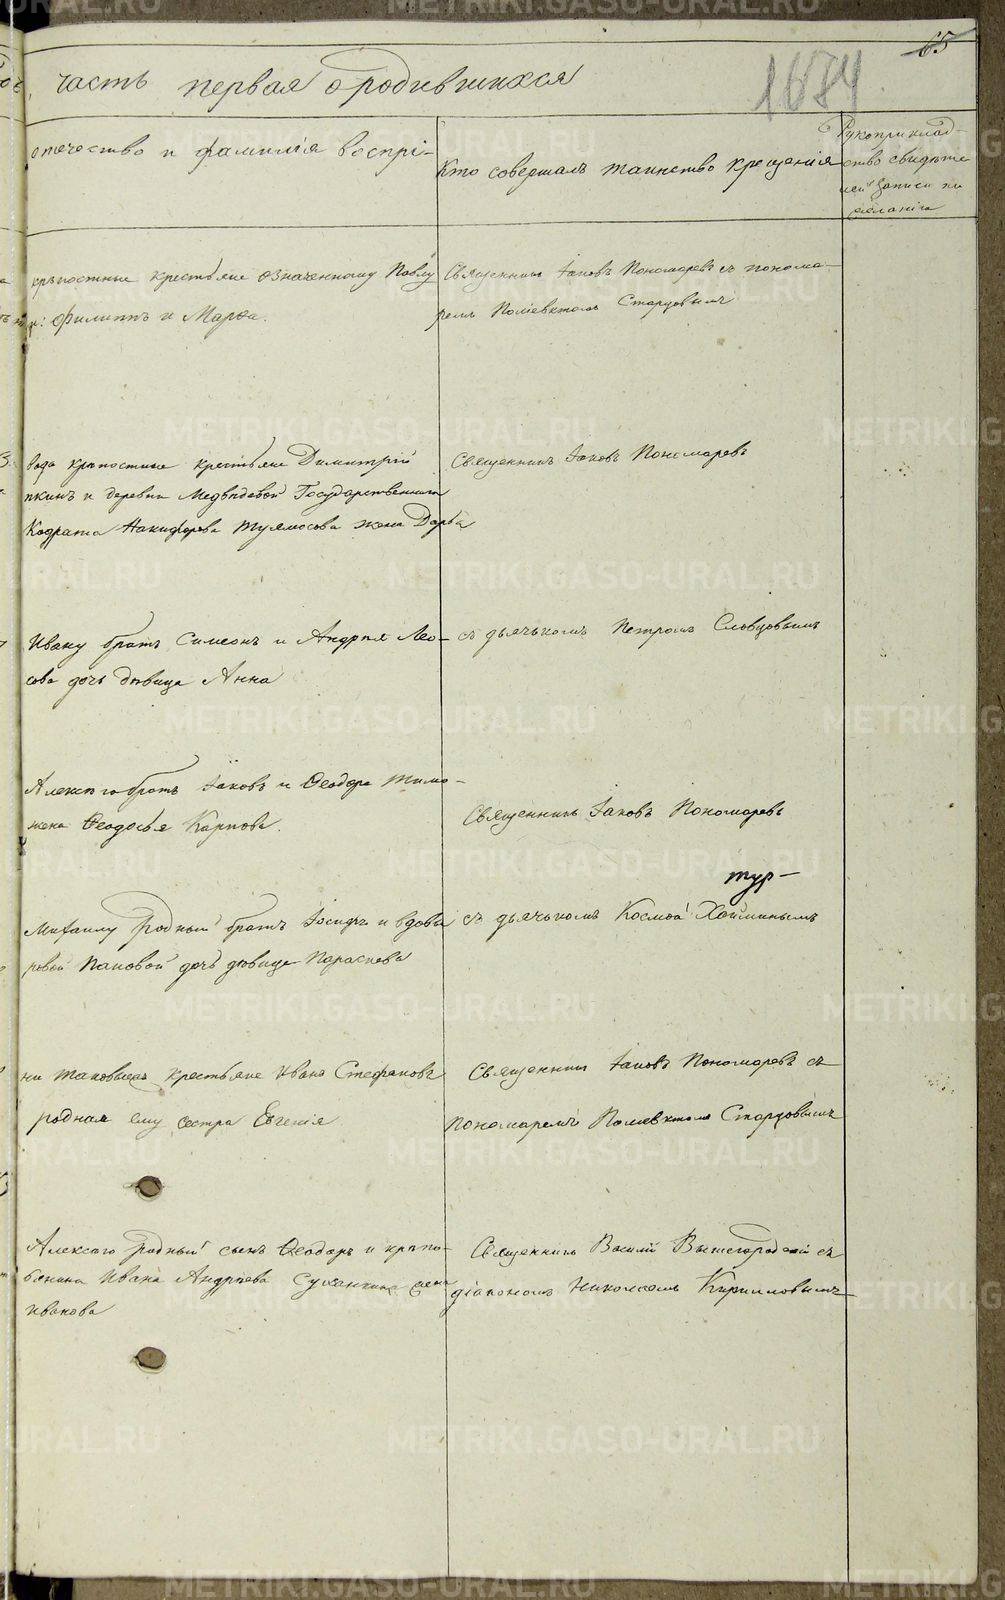 65
1674
часть первая о родившихся
отечество и фамилія воспрі-
Кто совершалъ таинство крещенія
Рукоприклад-
ство свидѣте
лей записи по
желанію
крѣпостные крестьяне означенному Павлу
Филиппъ и Марѳа.
Священникъ Іаковъ Пономаревъ съ понома-
ремъ Поліевктомъ Старцовымъ
вода крѣпостные крестьяне Димитрій
пкинъ и деревни Медвѣдевой Государственнаго
Кодрата Никифорова жена Дарья
Священникъ Іаковъ Пономаревъ
Ивану братъ Симеонъ и Андрея Лео-
сова дочь дѣвица Анна
съ дьячькомъ Петромъ Словцовымъ
Алексѣю братъ Іаковъ и Ѳеодора Тимо-
жена Ѳеодосья Карпова.
Священникъ Іаковъ Пономаревъ
тур-
Михаилу родный братъ Іосифъ и вдовы
ровой Пановой дочь дѣвица Параскева
съ дьячькомъ Космой Хайминымъ
ни Таковыхъ крестьяне Ивана Стефановъ
родная ему сестра Евгенія
Священникъ Іаковъ Пономаревъ съ
пономаремъ Поліевктомъ Старцовымъ
Алексѣю родный сынъ Ѳеодоръ и крѣпо-
бонина Ивана Андреева Суханкина жена
Иванова
Священникъ Василій Вышегородскій съ
діакономъ Николаемъ Кирилловымъ